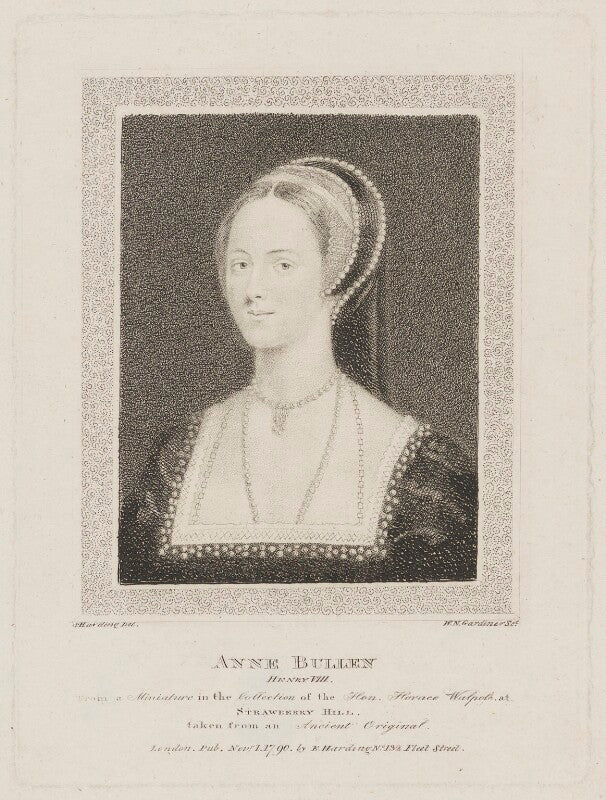 Harding Del.
W.N. Gardiner Sct.
ANNE BULLEN
HENRY VIII.
From a Miniature in the Collection of the Hon. Horace Walpole, at
STRAWBERRY HILL.
taken from an Ancient Original.
London. Pub. Novr. 1. 1790. by E. Harding No. 132 Fleet Street.